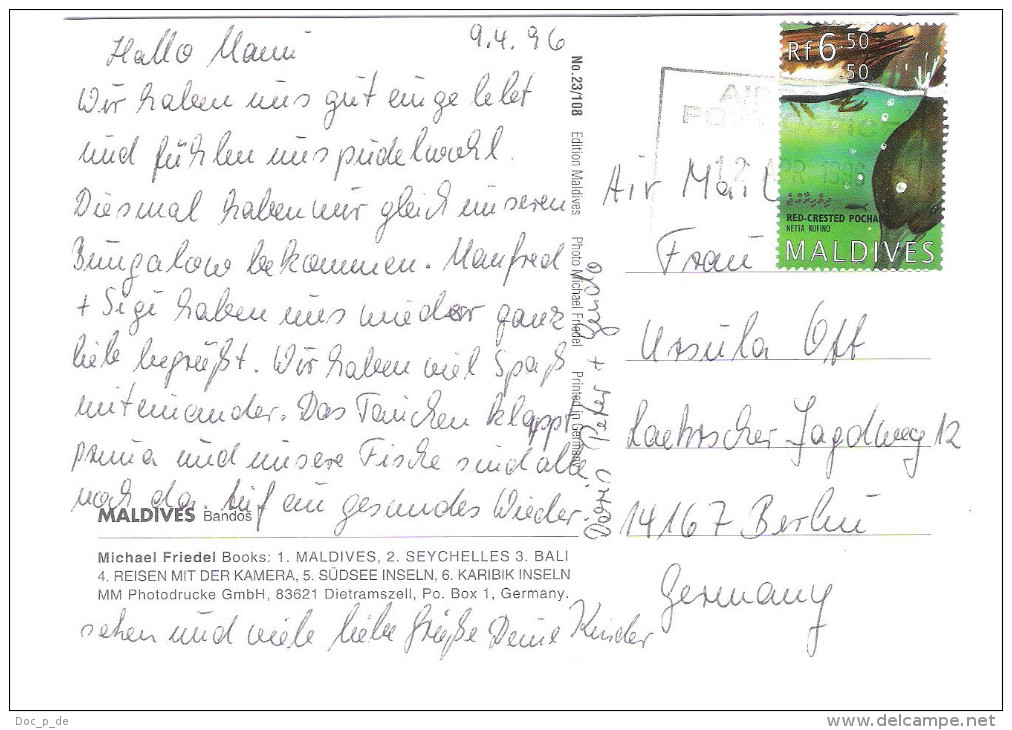 9.4.96
Hallo Mami
Wir haben uns gut eingelebt
und fühlen uns pudelwohl.
Diesmal haben wir gleich unseren
Bungalow bekommen. Manfred
+ Sigi haben uns wieder ganz
lieb begrüßt. Wir haben viel Spaß
miteinander. Das Tauchen klappt
prima und unsere Fische sind alle
noch da. Auf ein gesundes Wieder
MALDIVES Bandos
Michael Friedel Books: 1. MALDIVES, 2. SEYCHELLES 3. BALI
4. REISEN MIT DER KAMERA, 5. SÜDSEE INSELN, 6. KARIBIK INSELN
MM Photodrucke GmbH, 83621 Dietramszell, Po. Box 1, Germany.
sehen und viele liebe Grüße Deine Kinder
No.23/108 Edition Maldives Photo Michael Friedel Printed in Germany
Peter +
Rf6.50
.50
RED-CRESTED POCHA
NETTA RUFINO
MALDIVES
AIR
12 APR 1996
Air Mail
Frau
Ursula Ott
Jagdweg 12
14167 Berlin
Germany
Doc_p_de
www.delcampe.net